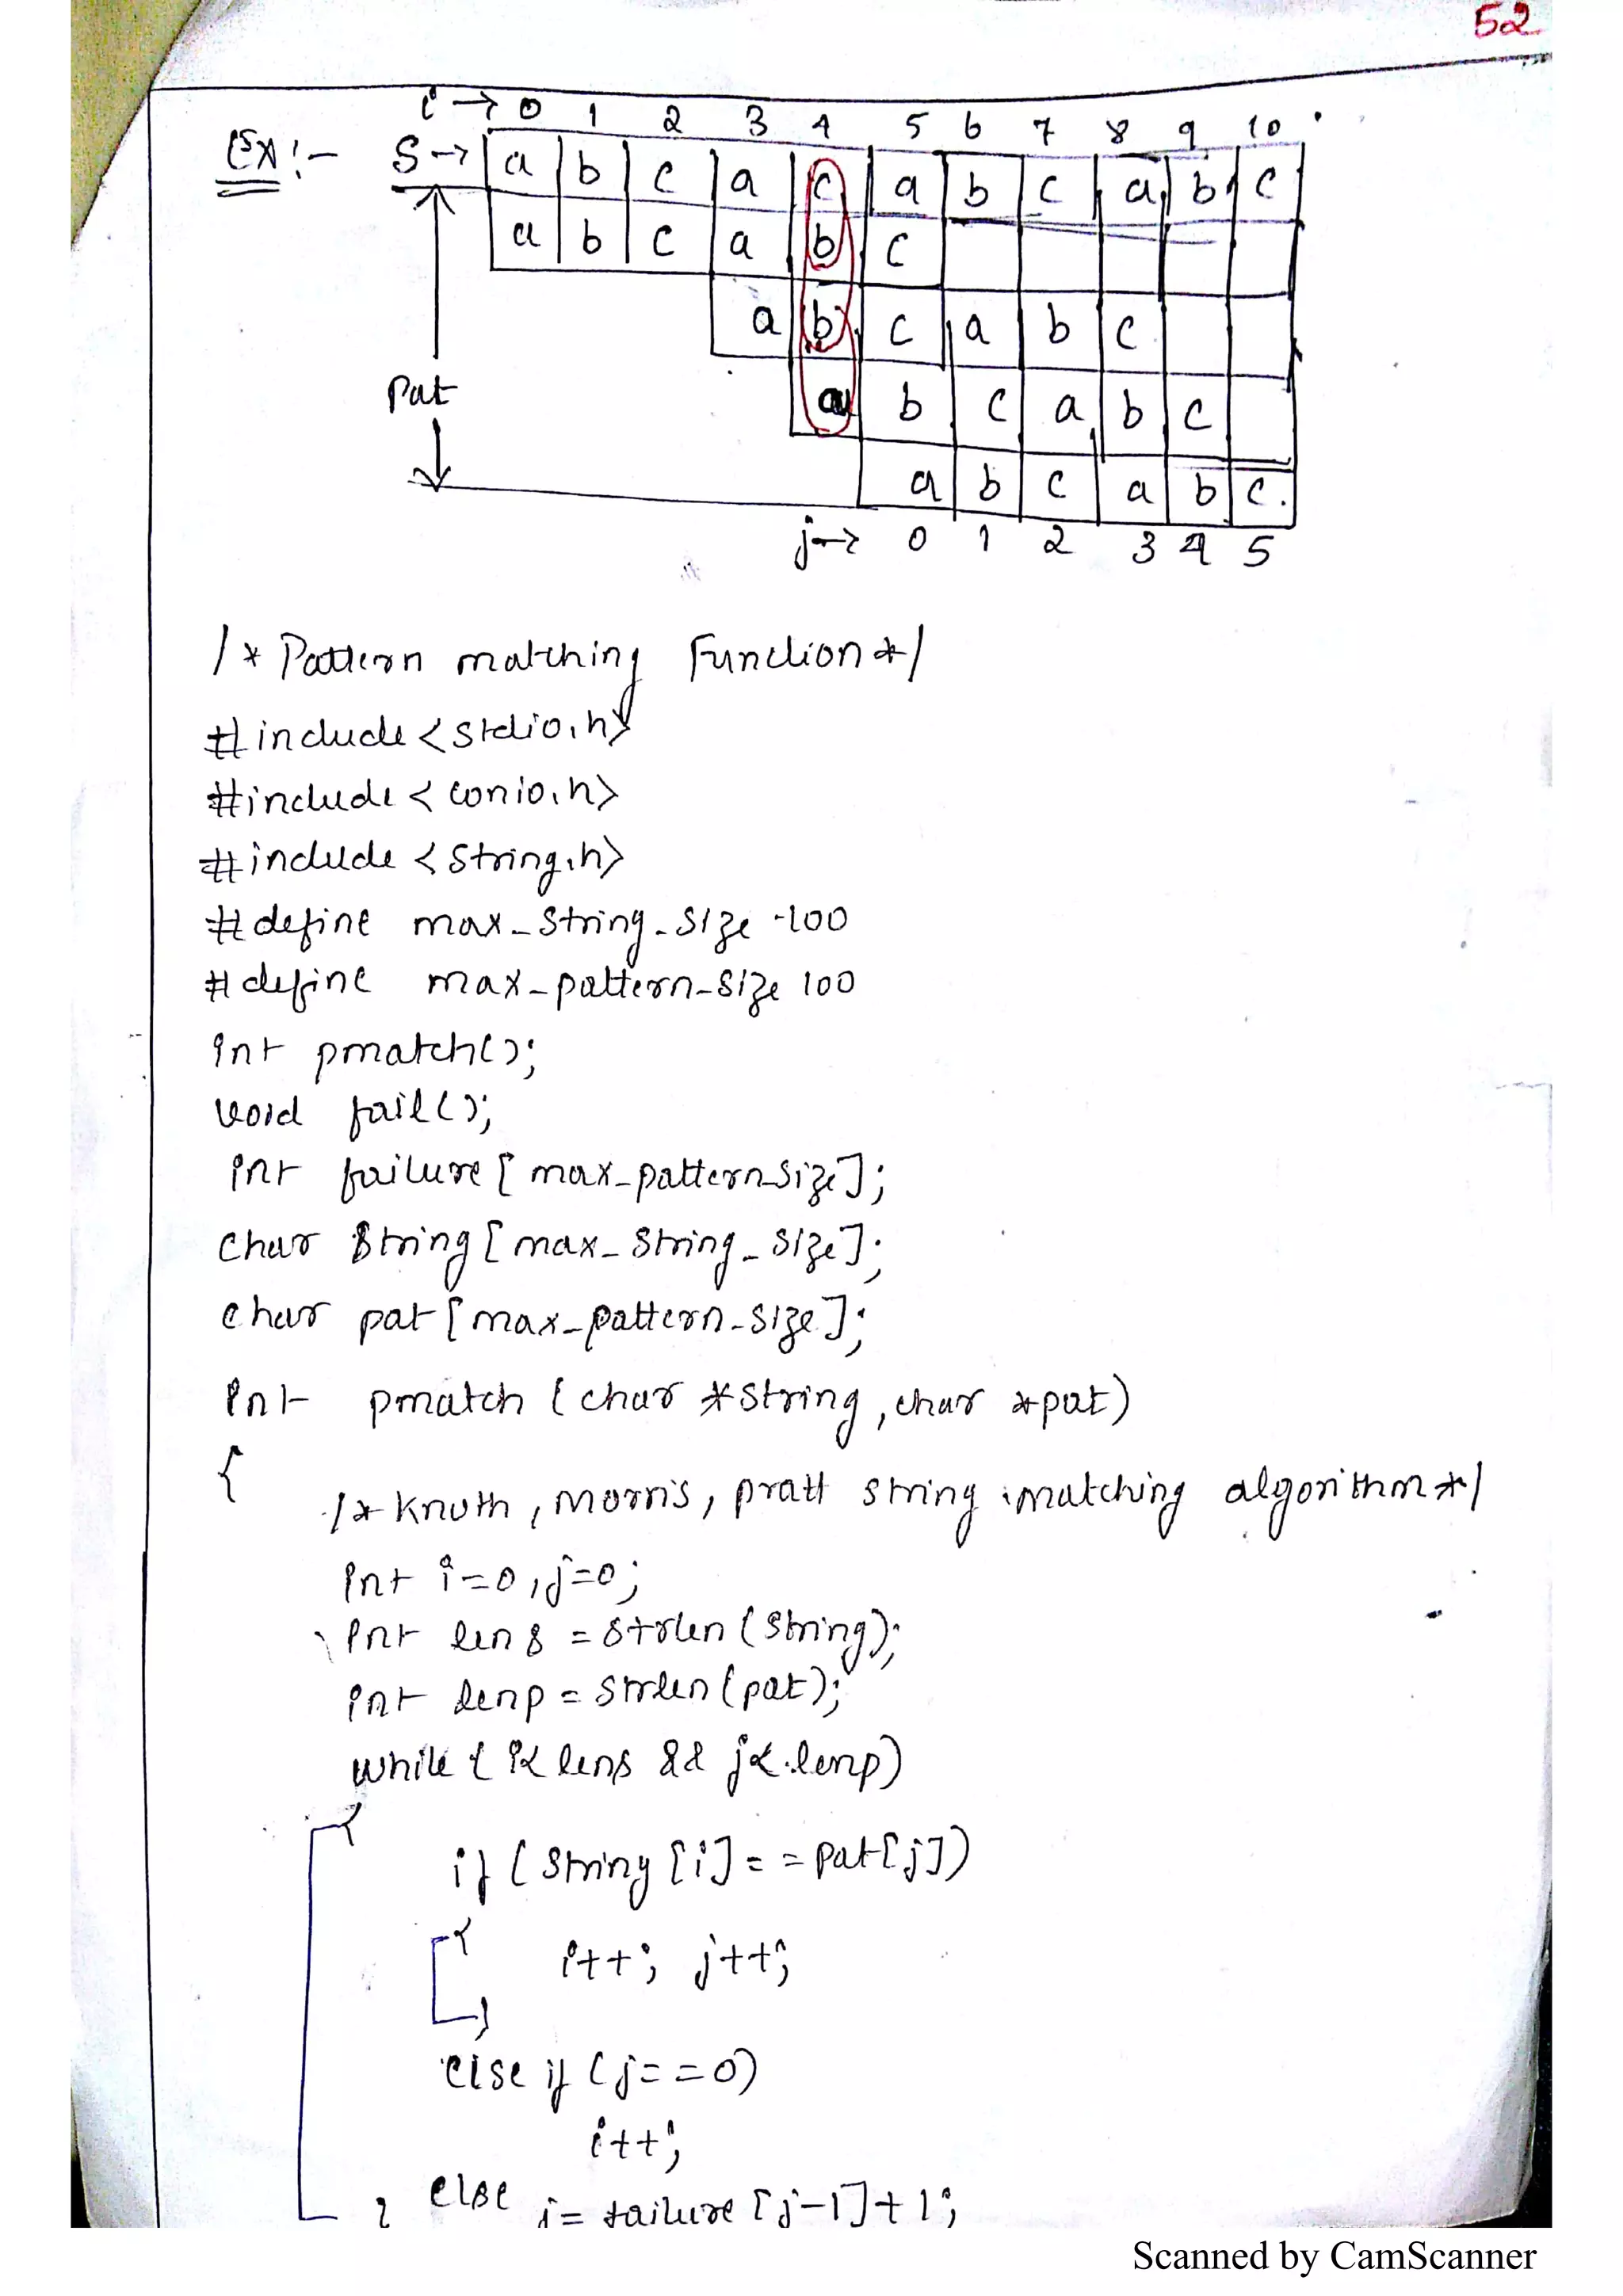 52
i → 0 1 2 3 4 5 6 7 8 9 10
Ex:- S → a b c a c a b c a b c
a b c a b c
a b c a b c
Pat
a b c a b c
a b c a b c.
j → 0 1 2 3 4 5
/* Pattern matching Function */
#include <stdio.h>
#include < conio.h>
#include < string.h>
#define max_string_size 100
#define max_pattern_size 100
int pmatch();
void fail();
int failure [ max_pattern_size];
char string [ max_string_size];
char pat [ max_pattern_size];
int pmatch ( char *string, char *pat)
{
/* Knuth, Morris, pratt string matching algorithm */
int i=0, j=0;
int lens = strlen (string);
int lenp = strlen (pat);
while ( i< lens && j< lenp)
{
if ( string [i] == pat[j])
{ i++; j++;
}
else if (j==0)
i++;
} else j= failure [j-1]+1;
Scanned by CamScanner